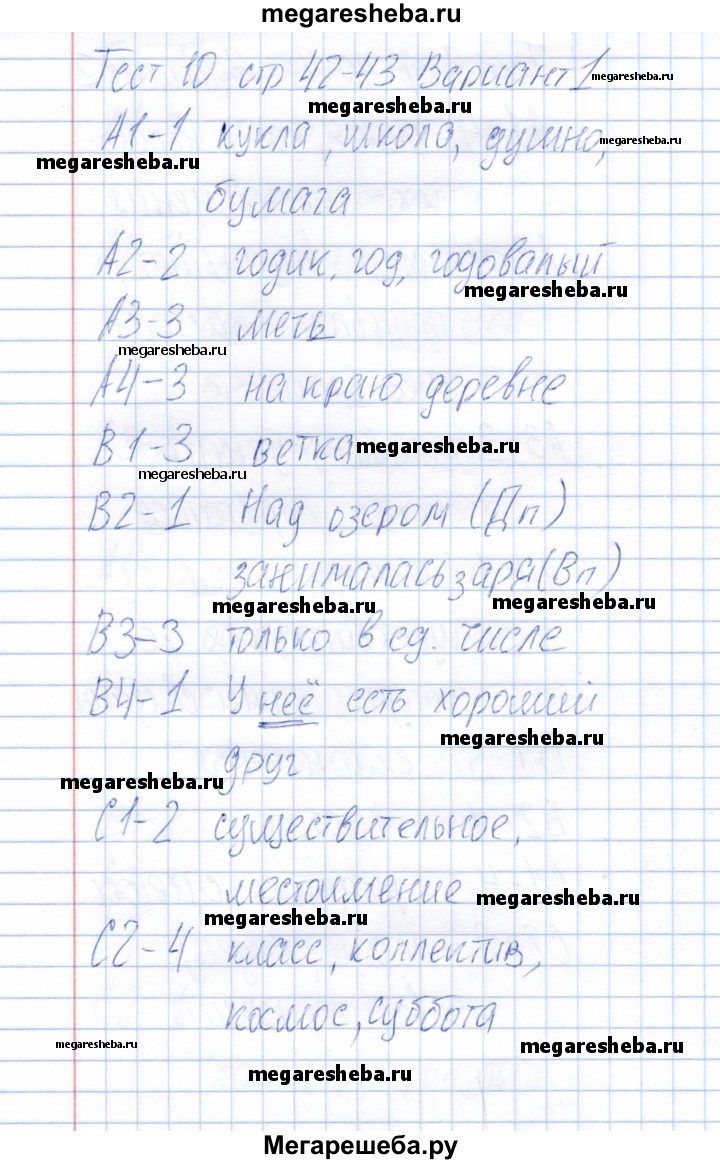 megaresheba.ru
Тест 10 стр 42-43 Вариант 1 megaresheba.ru
megaresheba.ru
А1-1 кукла, школа, душно, megaresheba.ru
megaresheba.ru
бумага
А2-2 годик, год, годовалый
megaresheba.ru
А3-3 меть
megaresheba.ru
А4-3 на краю деревне
В1-3 ветка megaresheba.ru
megaresheba.ru
В2-1 Над озером (Дп)
занималась заря (Вп)
megaresheba.ru megaresheba.ru
В3-3 только в ед. числе
В4-1 У неё есть хороший
megaresheba.ru
друг
megaresheba.ru
С1-2 существительное,
местоимение megaresheba.ru
megaresheba.ru
С2-4 класс, коллектив,
космос, суббота
megaresheba.ru megaresheba.ru
megaresheba.ru
Мегарешеба.ру